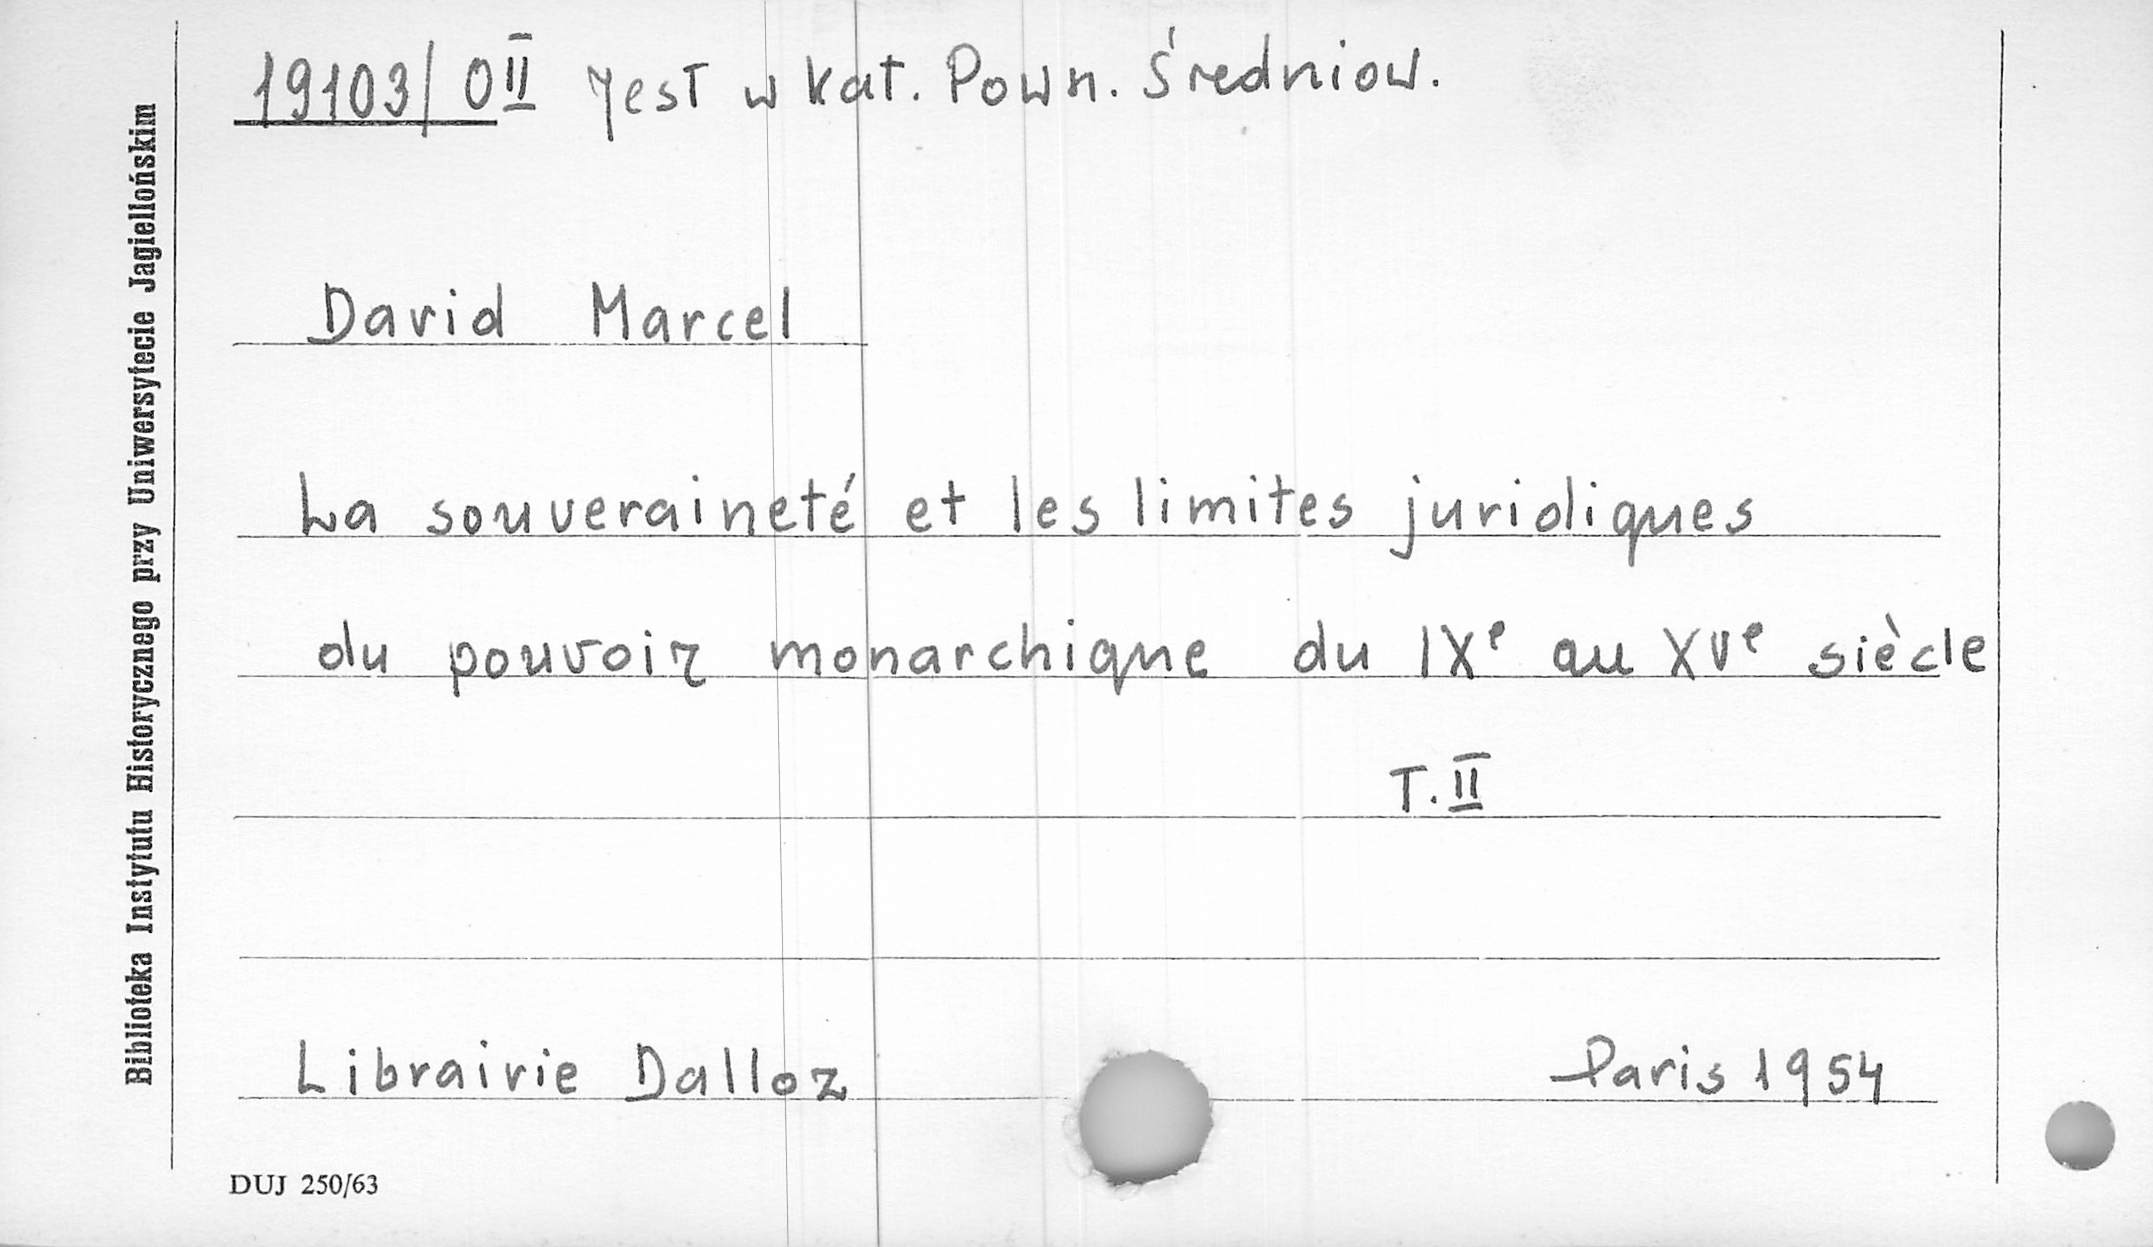 19103/OII jest w kat. Pown. Średniow.
David Marcel
La souveraineté et les limites juridiques
du pouvoir monarchique du IXe au XVe siècle
T. II
Librairie Dalloz Paris 1954
DUJ 250/63
Biblioteka Instytutu Historycznego przy Uniwersytecie Jagiellońskim